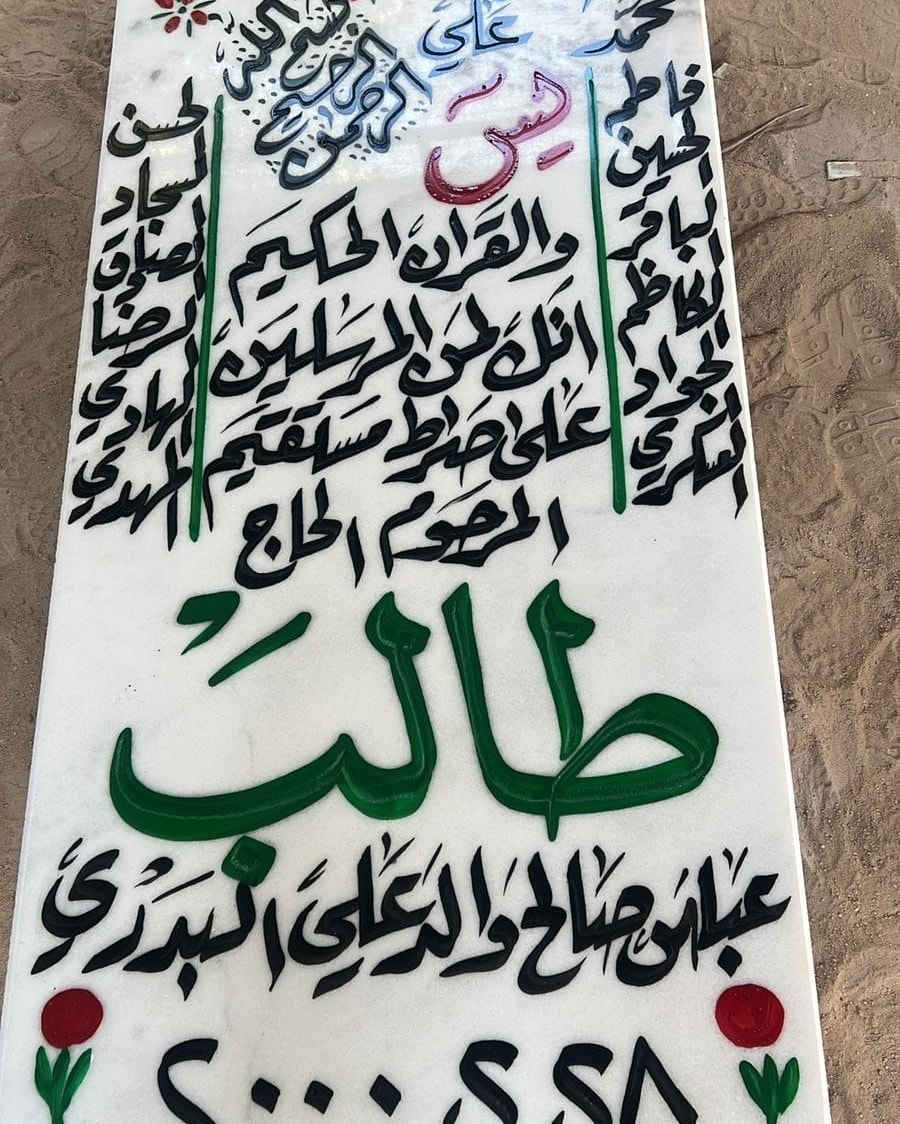 محمد
علي
بسم الله
الرحمن الرحيم
فاطمه
الحسين
الباقر
الكاظم
الجواد
العسكري
يس
والقران الحكيم
انك لمن المرسلين
على صراط مستقيم
الحسن
السجاد
الصادق
الرضا
الهادي
المهدي
المرحوم الحاج
طالب
عباس صالح والد علي البدري